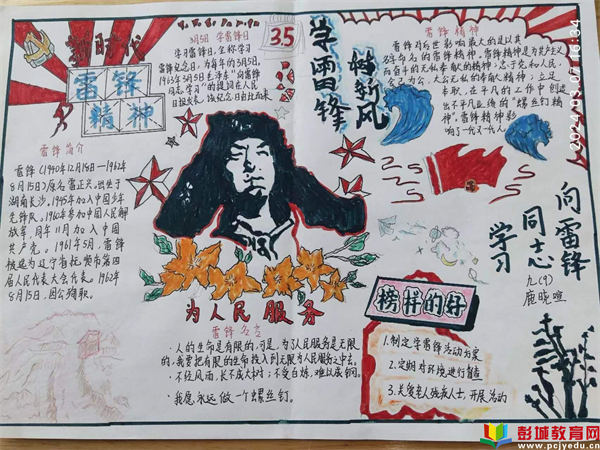 新时代
雷锋
精神
雷锋简介
雷锋(1940年12月18日—1962年
8月15日)原名雷正兴,出生于
湖南长沙,1945年加入中国少年
先锋队,1960年参加中国人民解
放军,同年11月加入中国
共产党。1961年5月,雷锋
被选为辽宁省抚顺市第四
届人民代表大会代表。1962年
8月15日,因公殉职。
3月5日 学雷锋日
学习雷锋日,全称学习
雷锋纪念日,为每年的3月5日。
1963年3月5日毛泽东"向雷锋
同志学习"的题词在人民
日报
3.5
学雷锋
树新风
雷锋精神
雷锋对后世影响最大的是以其
名命名的雷锋精神。雷锋精神是为共产主义
而奋斗的无私奉献的精神;忠于党和人民、
舍己为公、大公无私的奉献精神;立足
本职、在平凡的工作中创造
出不平凡业绩的"螺丝钉精
神"。雷锋精神影
响了一代一代人
2024/03/07 16:34
向雷锋
同志
学习
九(9)
鹿晓喧
为人民服务
雷锋名言
·人的生命是有限的,可是,为人民服务是无限
的,我要把有限的生命,投入到无限为人民服务之中去。
·不经风雨,长不成大树;不受百炼,难以成钢。
·我愿永远做一个螺丝钉。
榜样的好
1.制定学雷锋活动方案
2.定期对环境进行督查
3.关爱老人残疾人士,开展活动
彭城教育网
www.pcjyedu.cn